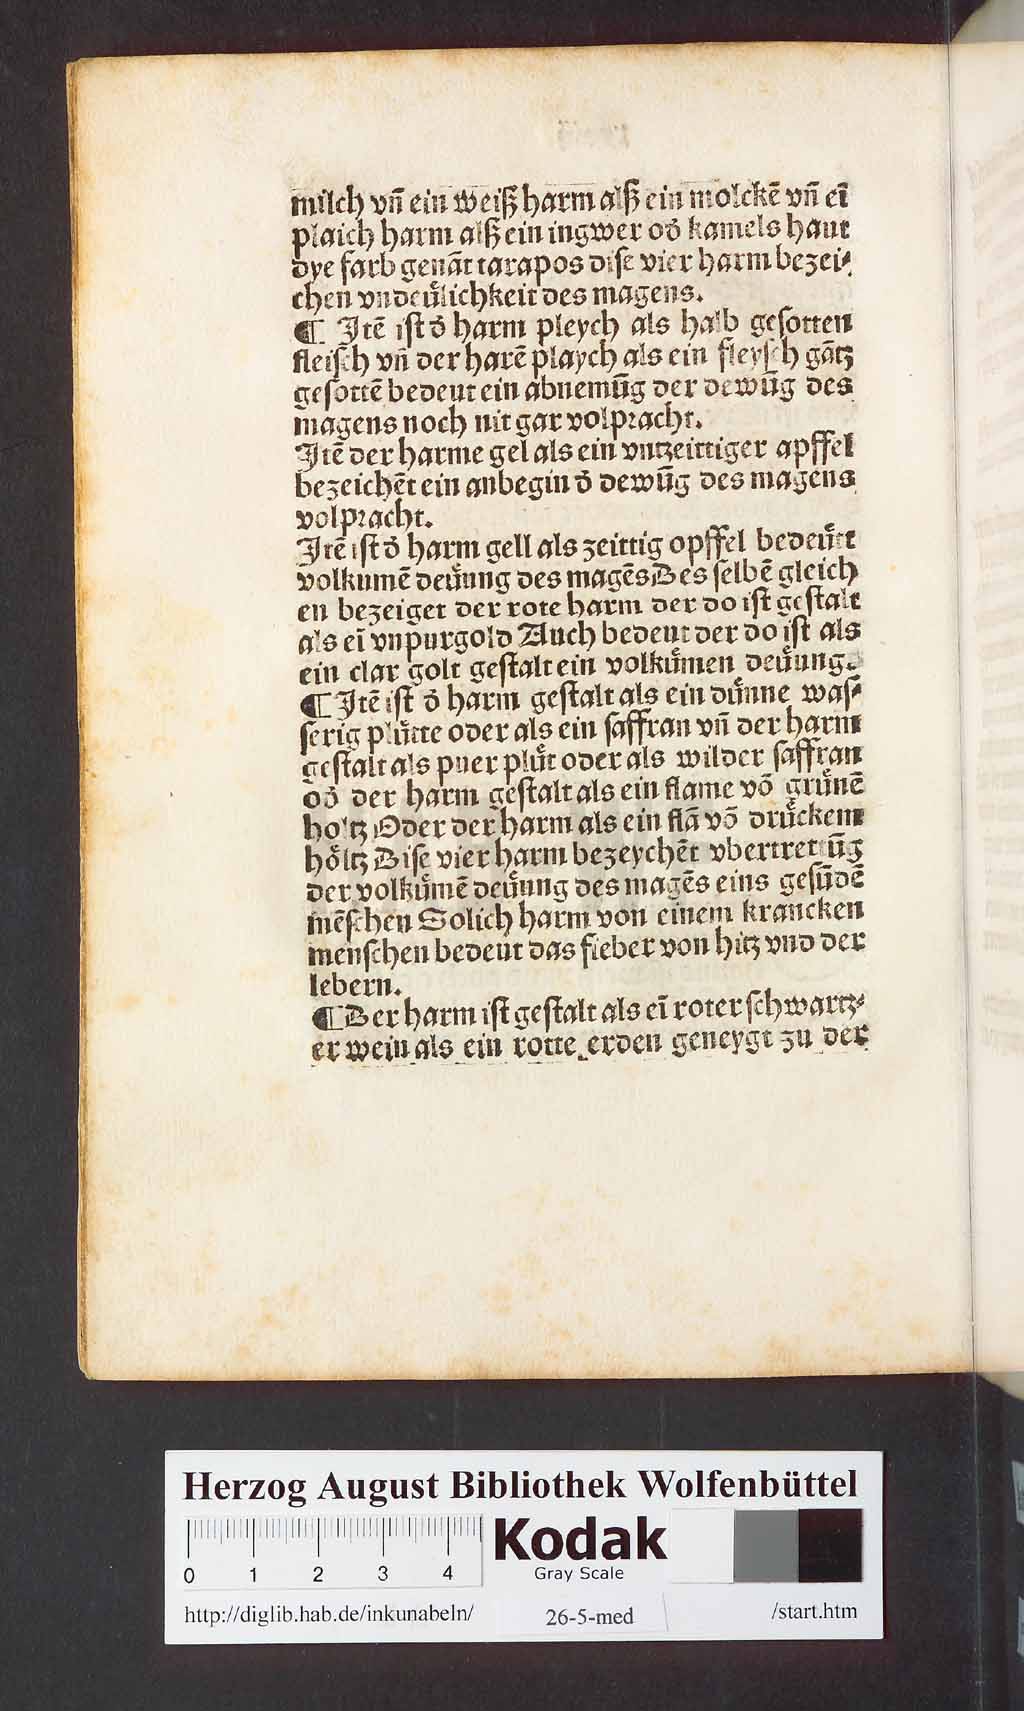 milch vn̄ ein weiß harm alß ein molckē vn̄ eī
plaich harm alß ein ingwer od̓ kamels haut
dye farb genāt tarapos dise vier harm bezei⸗
chen vndeuͤlichkeit des magens.
¶ Itē ist d̓ harm pleych als halb gesotten
fleisch vn̄ der harē playch als ein fleysch gātz
gesottē bedeut ein abnemūg der dewūg des
magens noch nit gar volpracht.
Itē der harme gel als ein vntzeittiger apffel
bezeichēt ein anbegin d̓ dewūg des magens
volpracht.
Itē ist d̓ harm gell als zeittig opffel bedeuͤtt
volkumē deuͤung des magēs Des selbē gleich
en bezeiget der rote harm der do ist gestalt
als eī vnpurgold Auch bedeut der do ist als
ein clar golt gestalt ein volkuͤmen deuͤung.
¶ Itē ist d̓ harm gestalt als ein duͤnne was⸗
serig pluͤtte oder als ein saffran vn̄ der harm
gestalt als puer pluͤt oder als wilder saffran
od̓ der harm gestalt als ein flame vō gruͤnē
holtz Oder der harm als ein flā vō druͤckem
hoͤltz Dise vier harm bezeychēt vbertrettūg
der volkuͤmē deuͤung des magēs eins gesūdē
mēschen Solich harm von einem krancken
menschen bedeut das fieber von hitz vnd der
lebern.
¶ Der harm ist gestalt als eī roter schwartz⸗
er wein als ein rotte erden geneygt zu der
Herzog August Bibliothek Wolfenbüttel
Kodak
Gray Scale
0 1 2 3 4
http://diglib.hab.de/inkunabeln/ 26-5-med /start.htm